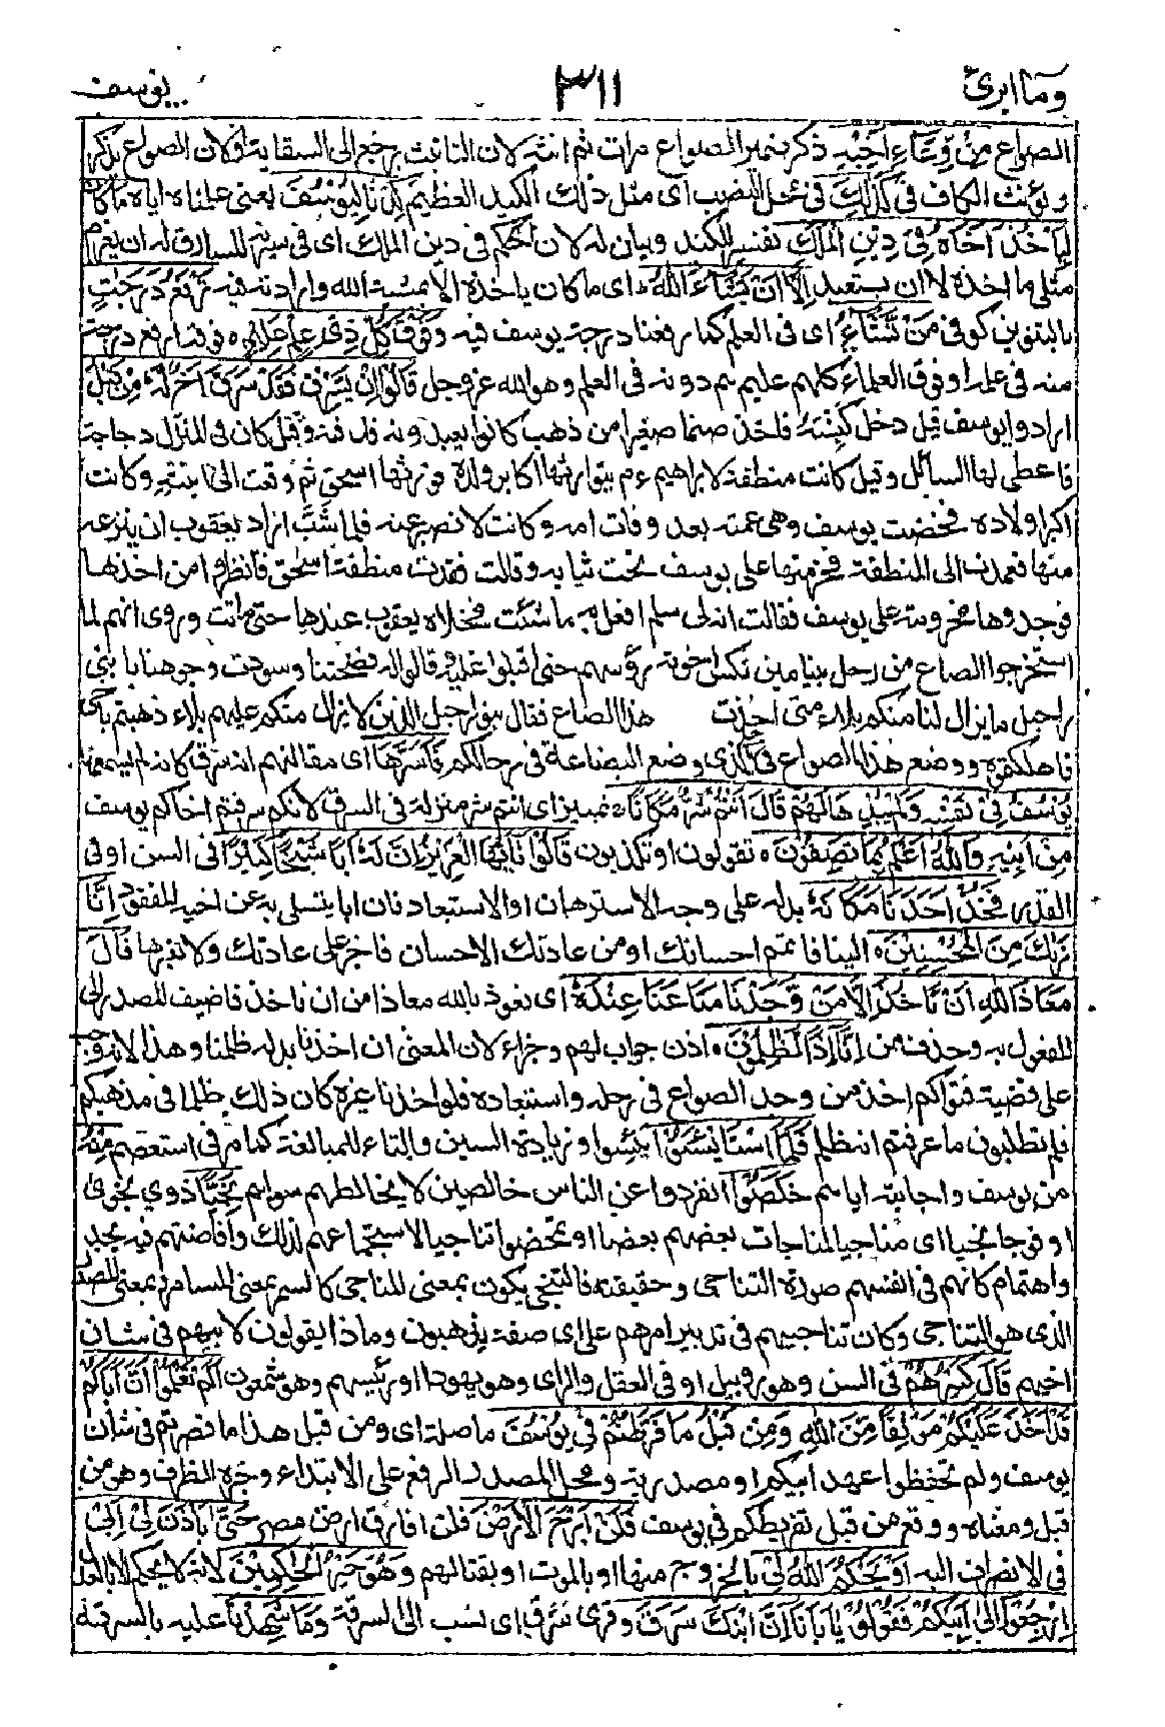 وما ابرئ ٣١١ يوسف
الصواع مِنْ وِّعَاءِ اَخِيْهِ ذكر ضمير الصواع مرات ثم انثه لان التانيث يرجع الى السقاية او لان الصواع يذكر
ويؤنث الكاف فى كَذٰلِكَ فى محل النصب اى مثل ذلك الكيد العظيم كِدْنَا لِيُوْسُفَ يعنى علمناه اياه مَا كَانَ
لِيَاْخُذَ اَخَاهُ فِىْ دِيْنِ الْمَلِكِ تفسير للكيد وبيان له لان الحكم فى دين الملك اى فى سيرته للسارق له ان يغرم
مثلى ما اخذه لا ان يستعبد اِلَّا اَنْ يَّشَاءَ اللّٰهُ اى ما كان ياخذه الا بمشية الله وارادته فيه نَرْفَعُ دَرَجٰتٍ
بالتنوين كوفى مَنْ نَّشَاءُ اى فى العلم كما رفعنا درجة يوسف فيه وَفَوْقَ كُلِّ ذِىْ عِلْمٍ عَلِيْمٌ ه فوقه ارفع درجة
منه فى علمه او فوق العلماء كلهم عليم هم دونه فى العلم وهو الله عز وجل قَالُوْا اِنْ يَّسْرِقْ فَقَدْ سَرَقَ اَخٌ لَّهٗ مِنْ قَبْلُ
ارادوا يوسف قيل دخل كنيسة فاخذ صنما صغيرا من ذهب كانوا يعبدونه فدفنه وقيل كان فى المنزل دجاجة
فاعطى لها السائل وقيل كانت منطقة لابراهيم عم يتوارثها اكابر ولده فورثها اسحق ثم وقعت الى ابنته وكانت
اكبر اولاده فحضنت يوسف وهى عمته بعد وفات امه وكانت لا تصبر عنه فلما شَبَّ اراد يعقوب ان ينزعه
منها فعمدت الى المنطقة فحزمتها على يوسف تحت ثيابه وقالت فقدت منطقة اسحق فانظروا من اخذها
فوجدوها محزومة على يوسف فقالت انه لى سلم افعل به ما شئت فخلاه يعقوب عندها حتى ماتت وروى انهم لما
استخرجوا الصاع من رحل بنيامين نكس اخوته رؤسهم حتى اقبلوا عليه وقالوا له فضحتنا وسودت وجوهنا يا بنى
راحيل ما يزال لنا منكم بلاء متى اخذت هذا الصاع فقال بنو راحيل الذين لا يزال منكم عليهم بلاء ذهبتم باخى
فاهلكتموه ووضع هذا الصواع فى رحلى الذى وضع البضاعة فى رحالكم فَاَسَرَّهَا اى مقالتهم انه سرق كانه لم يسمعها
يُوْسُفُ فِىْ نَفْسِهٖ وَلَمْ يُبْدِهَا لَهُمْ قَالَ اَنْتُمْ شَرٌّ مَّكَانًا ه تمييز اى انتم شر منزلة فى السرق لانكم سرقتم اخاكم يوسف
مِن ابيه وَاللّٰهُ اَعْلَمُ بِمَا تَصِفُوْنَ ه تقولون او تكذبون قَالُوْا يٰاَيُّهَا الْعَزِيْزُ اِنَّ لَهٗ اَبًا شَيْخًا كَبِيْرًا فى السن او فى
القدر فَخُذْ اَحَدَنَا مَكَانَهٗ بدله على وجه الاسترهان او الاستعباد فان اباه يتسلى به عن اخيه المفقود اِنَّا
نَرٰكَ مِنَ الْمُحْسِنِيْنَ ه الينا فاتمم احسانك او من عادتك الاحسان فاجر على عادتك ولا تغيرها قَالَ
مَعَاذَ اللّٰهِ اَنْ نَّاْخُذَ اِلَّا مَنْ وَّجَدْنَا مَتَاعَنَا عِنْدَهٗ اى نعوذ بالله معاذا من ان ناخذ فاضيف المصدر الى
المفعول به وحذف من اِنَّا اِذًا لَّظٰلِمُوْنَ ه اذن جواب لهم وجزاء لان المعنى ان اخذنا بدله ظلمنا وهذا لانه وجب
على قضية فتواكم اخذ من وجد الصواع فى رحله واستعباده فلو اخذنا غيره كان ذلك ظلما فى مذهبكم
فلم تطلبون ما عرفتم انه ظلم فَلَمَّا اسْتَايْئَسُوْا ايئسوا وزيادة السين والتاء للمبالغة كما مر فى استعصم مِنْهُ
من يوسف واجابته اياهم خَلَصُوْا انفردوا عن الناس خالصين لا يخالطهم سواهم نَجِيًّا ذوى نجوى
او فوجا نجيا اى مناجيا لمناجات بعضهم بعضا او تمحضوا تناجيا لاستجماعهم لذلك وافاضتهم فيه بجد
واهتمام كانهم فى انفسهم صورة التناجى وحقيقته فالنجى يكون بمعنى المناجى كالسمير بمعنى المسامر وبمعنى المصدر
الذى هو التناجى وكان تناجيهم فى تدبير امرهم على اى صفة يذهبون وماذا يقولون لابيهم فى شان
اخيهم قَالَ كَبِيْرُهُمْ فى السن وهو روبيل او فى العقل والراى وهو يهودا او رئيسهم وهو شمعون اَلَمْ تَعْلَمُوْا اَنَّ اَبَاكُمْ
قَدْ اَخَذَ عَلَيْكُمْ مَّوْثِقًا مِّنَ اللّٰهِ وَمِنْ قَبْلُ مَا فَرَّطْتُّمْ فِىْ يُوْسُفَ ما صلة اى ومن قبل هذا ما قصرتم فى شان
يوسف ولم تحفظوا عهد ابيكم او مصدرية ومحل المصدر الرفع على الابتداء وخبره الظرف وهو من
قبل ومعناه ووقع من قبل تفريطكم فى يوسف فَلَنْ اَبْرَحَ الْاَرْضَ فلن افارق ارض مصر حَتّٰى يَاْذَنَ لِىْ اَبِىْ
فى الانصراف اليه اَوْ يَحْكُمَ اللّٰهُ لِىْ بالخروج منها او بالموت او بقتالهم وَهُوَ خَيْرُ الْحٰكِمِيْنَ لانه لا يحكم الا بالعدل
اِرْجِعُوْا اِلٰى اَبِيْكُمْ فَقُوْلُوْا يٰاَبَانَا اِنَّ ابْنَكَ سَرَقَ وقرى سُرِّق اى نسب الى السرقة وَمَا شَهِدْنَا عليه بالسرقة